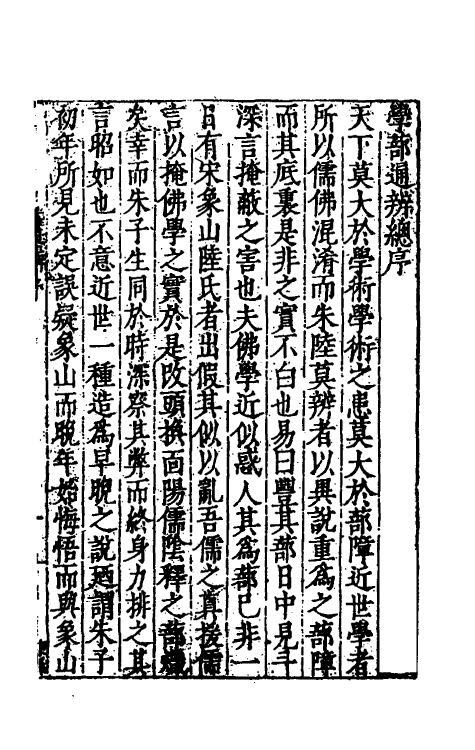 學蔀通辨總序
天下莫大於學術學術之患莫大於蔀障近世學者
所以儒佛混淆而朱陸莫辨者以異說重爲之蔀障
而其底裏是非之實不白也易曰豐其蔀日中見斗
深言掩蔽之害也夫佛學近似惑人其爲蔀已非一
日有宋象山陸氏者出假其似以亂吾儒之眞援儒
言以掩佛學之實於是改頭換面陽儒陰釋之蔀熾
矣幸而朱子生同於時深察其弊而終身力排之其
言昭如也不意近世一種造爲早晚之說廼謂朱子
初年所見未定誤疑象山而晚年始悔悟而與象山